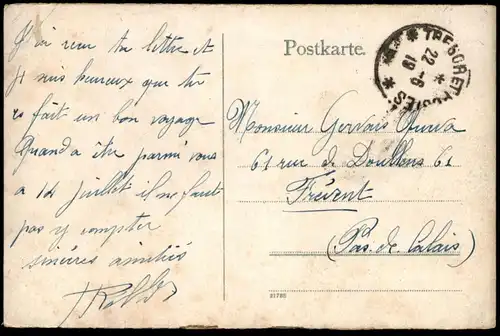 J'ai reçu ta lettre et
je suis heureux que tu
es fait un bon voyage
Quand a être parmi vous
a 14 juillet il ne faut
pas y compter
sincères amitiés
Postkarte.
TRESOR ET POSTES
22 - 6
19
Monsieur Gervais
61 rue de Doullens 61
Frévent
(Pas. de Calais)
21795